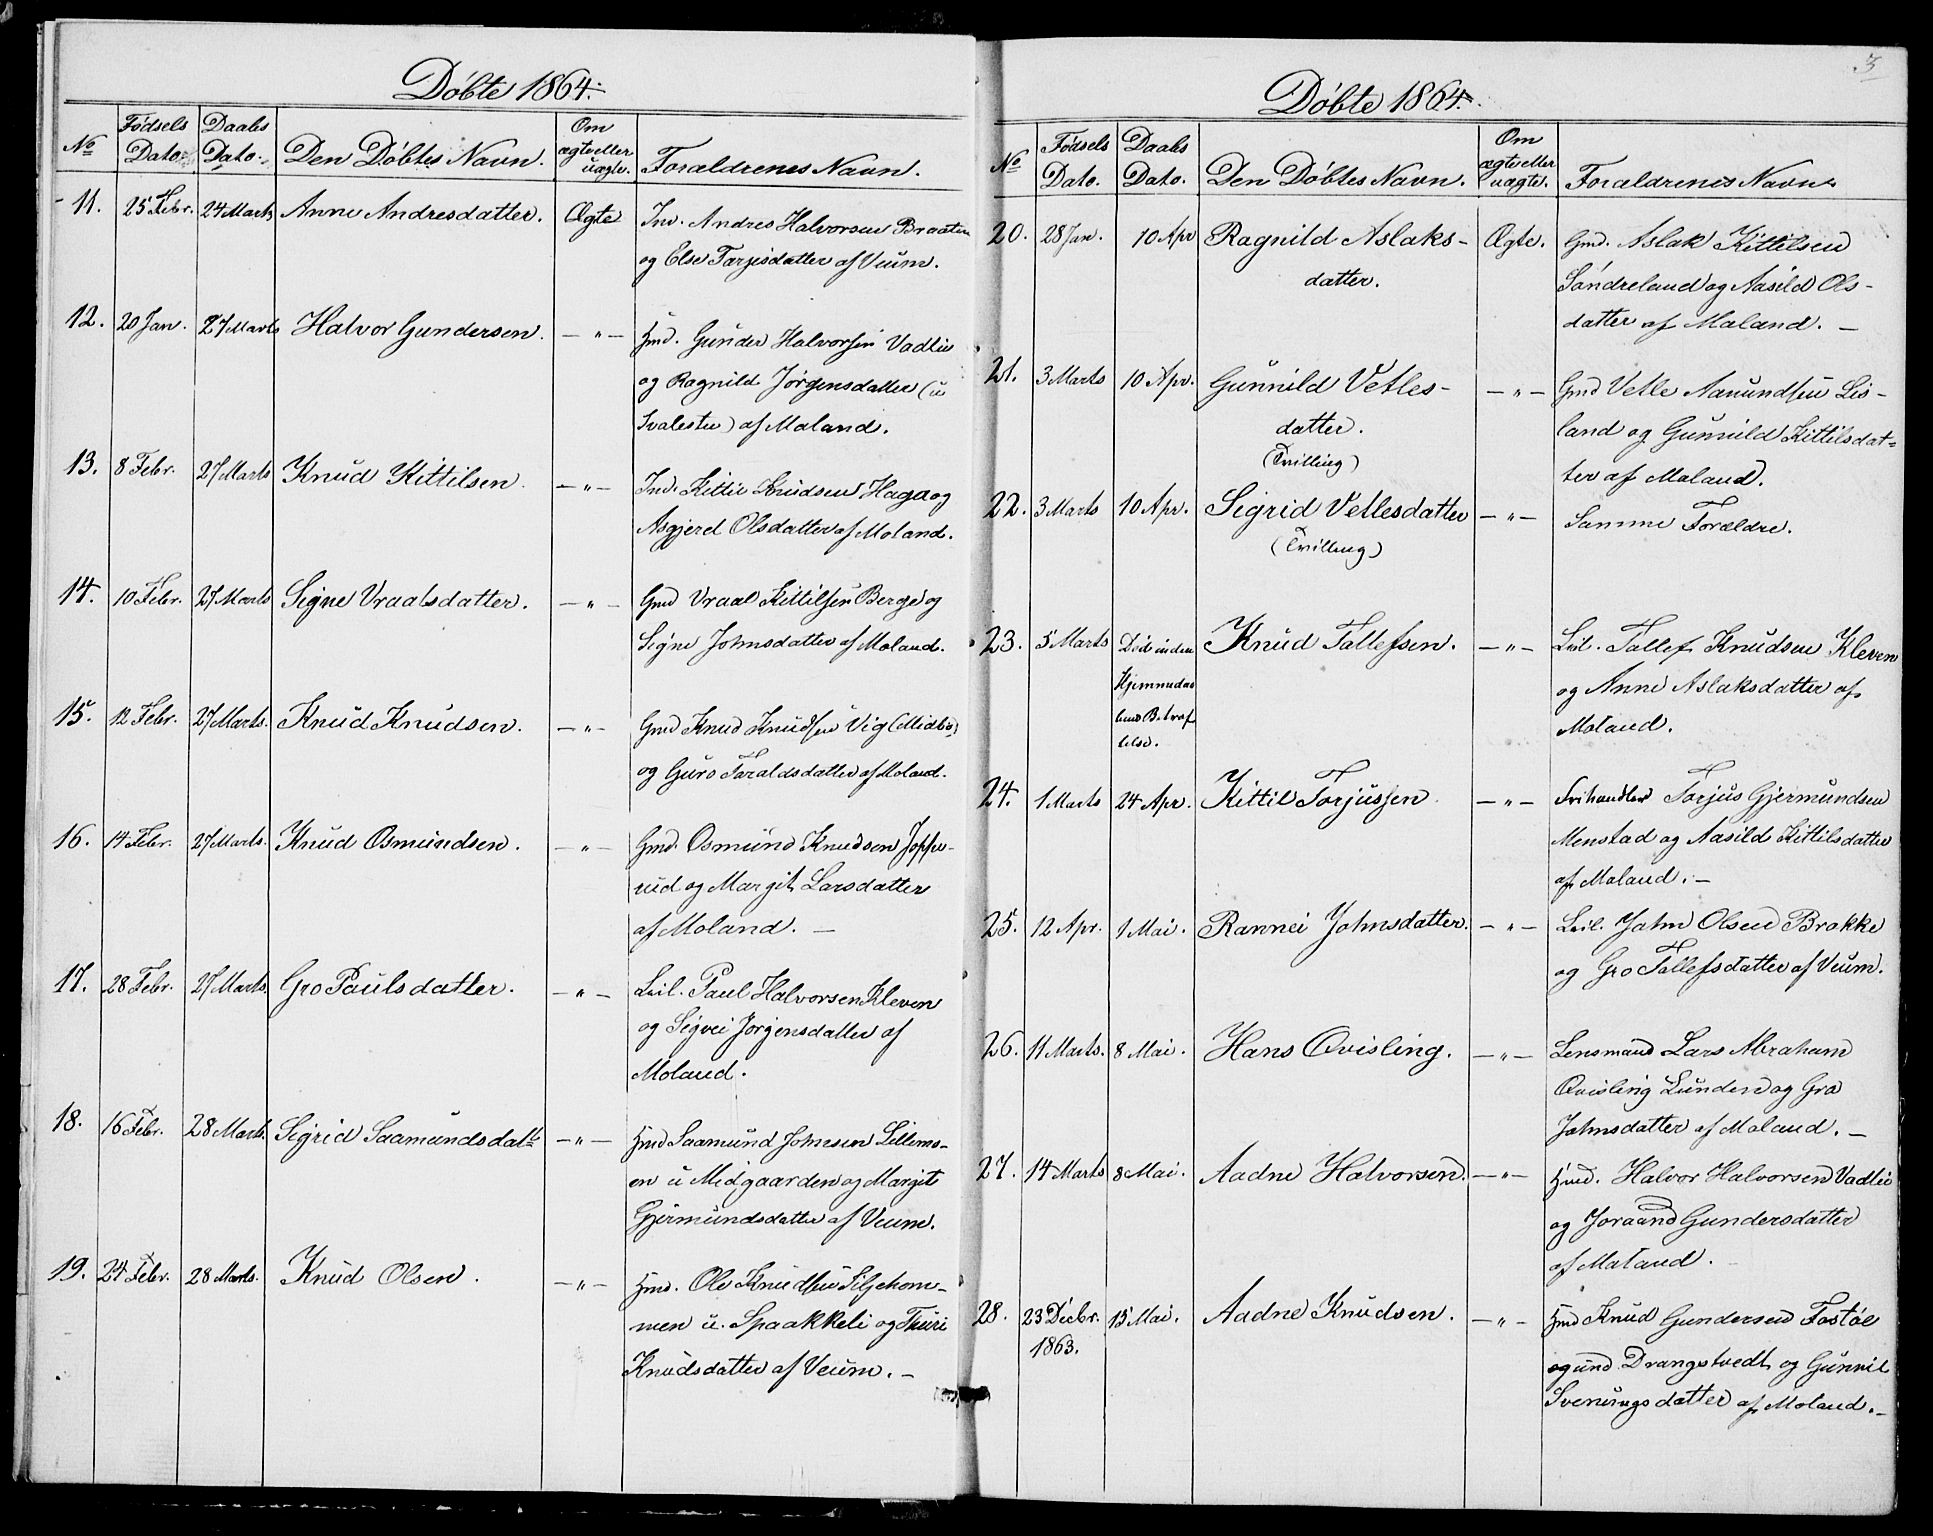 Døbte 1864.
No
Fødsels Dato.
Daabs Dato.
Den Døbtes Navn.
Om ægte eller uægte.
Forældrenes Navn.
11. 25 Febr. 24 Marts Anne Andresdatter. Ægte Ind. Andres Halvorsen Braaten
og Else Tarjeisdatter af Veum.
12. 20 Jan. 27 Marts Halvor Gundersen. —"— Hmd. Gunder Halvorsen Vadlie
og Ragnild Jørgensdatter (u
Svalestu) af Moland.
13. 8 Febr. 27 Marts Knud Kittilsen. —"— Ind. Kittil Knudsen Haga og
Asgjerd Olsdatter af Moland.
14. 10 Febr. 27 Marts Signe Vraalsdatter. —"— Gmd Vraal Kittilsen Berge og
Signe Johnsdatter af Moland.
15. 12 Febr. 27 Marts. Knud Knudsen. —"— Gmd Knud Knudsen Vig (Midbø)
og Guro Taraldsdatter af Moland.
16. 14 Febr. 27 Marts. Knud Osmundsen. —"— Gmd. Osmund Knudsen Joppe-
rud og Margit Larsdatter
af Moland. —
17. 28 Febr. 27 Marts. Gro Paulsdatter. —"— Leil. Paul Halvorsen Kleven
og Sigvei Jørgensdatter af
Moland.
18. 16 Febr. 28 Marts. Sigrid Saamundsdattr —"— Hmd Saamund Johnsen Lillems-
en u Midgaarden og Margit
Gjermundsdatter af Veum.
19. 24 Febr. 28 Marts. Knud Olsen. —"— Hmd. Ole Knudsen Siljehom-
men u. Spaakkeli og Thuri
Knudsdatter af Veum. —
3
Døbte 1864.
No
Fødsels Dato.
Daabs Dato.
Den Døbtes Navn.
Om ægte eller uægte.
Forældrenes Navn
20. 28 Jan. 10 Apr Ragnild Aslaks- Ægte. Gmd. Aslak Kittilsen
datter. Søndreland og Aasild Ols-
datter af Moland. —
21. 3 Marts 10 Apr. Gunnild Vetles- —"— Gmd Vetle Aanundsen Lis-
datter. land og Gunnild Kittilsdat-
(Tvilling) ter af Moland.
22. 3 Marts 10 Apr. Sigrid Vetlesdatter —"— Samme Forældre.
(Tvilling)
23. 5 Marts Død inden Knud Tallefsen. —"— Leil. Tallef Knudsen Kleven
Hjemmedaa og Anne Aslaksdatter af
bens Moland.
telse.
24. 1 Marts 24 Apr. Kittil Torjussen. —"— Frihandler Torjus Gjermundsen
Menstad og Aasild Kittilsdatter
af Moland. —
25. 12 Apr. 1 Mai. Rannei Johnsdatter. —"— Leil. John Olsen Brokke
og Gro Tallefsdatter af Veum.
26. 11 Marts. 8 Mai. Hans Qvisling. —"— Lensmand Lars Abraham
Qvisling Lunden og Gro
Johnsdatter af Moland. —
27. 14 Marts 8 Mai. Aadne Halvorsen. —"— Hmd. Halvor Halvorsen Vadlie
og Joraand Gundersdatter
af Moland.
28. 23 Decbr. 15 Mai. Aadne Knudsen. —"— Hmd Knud Gundersen Fostøl
1863. og und Drangstvedt og Gunnil
Svenungsdatter af Moland. —